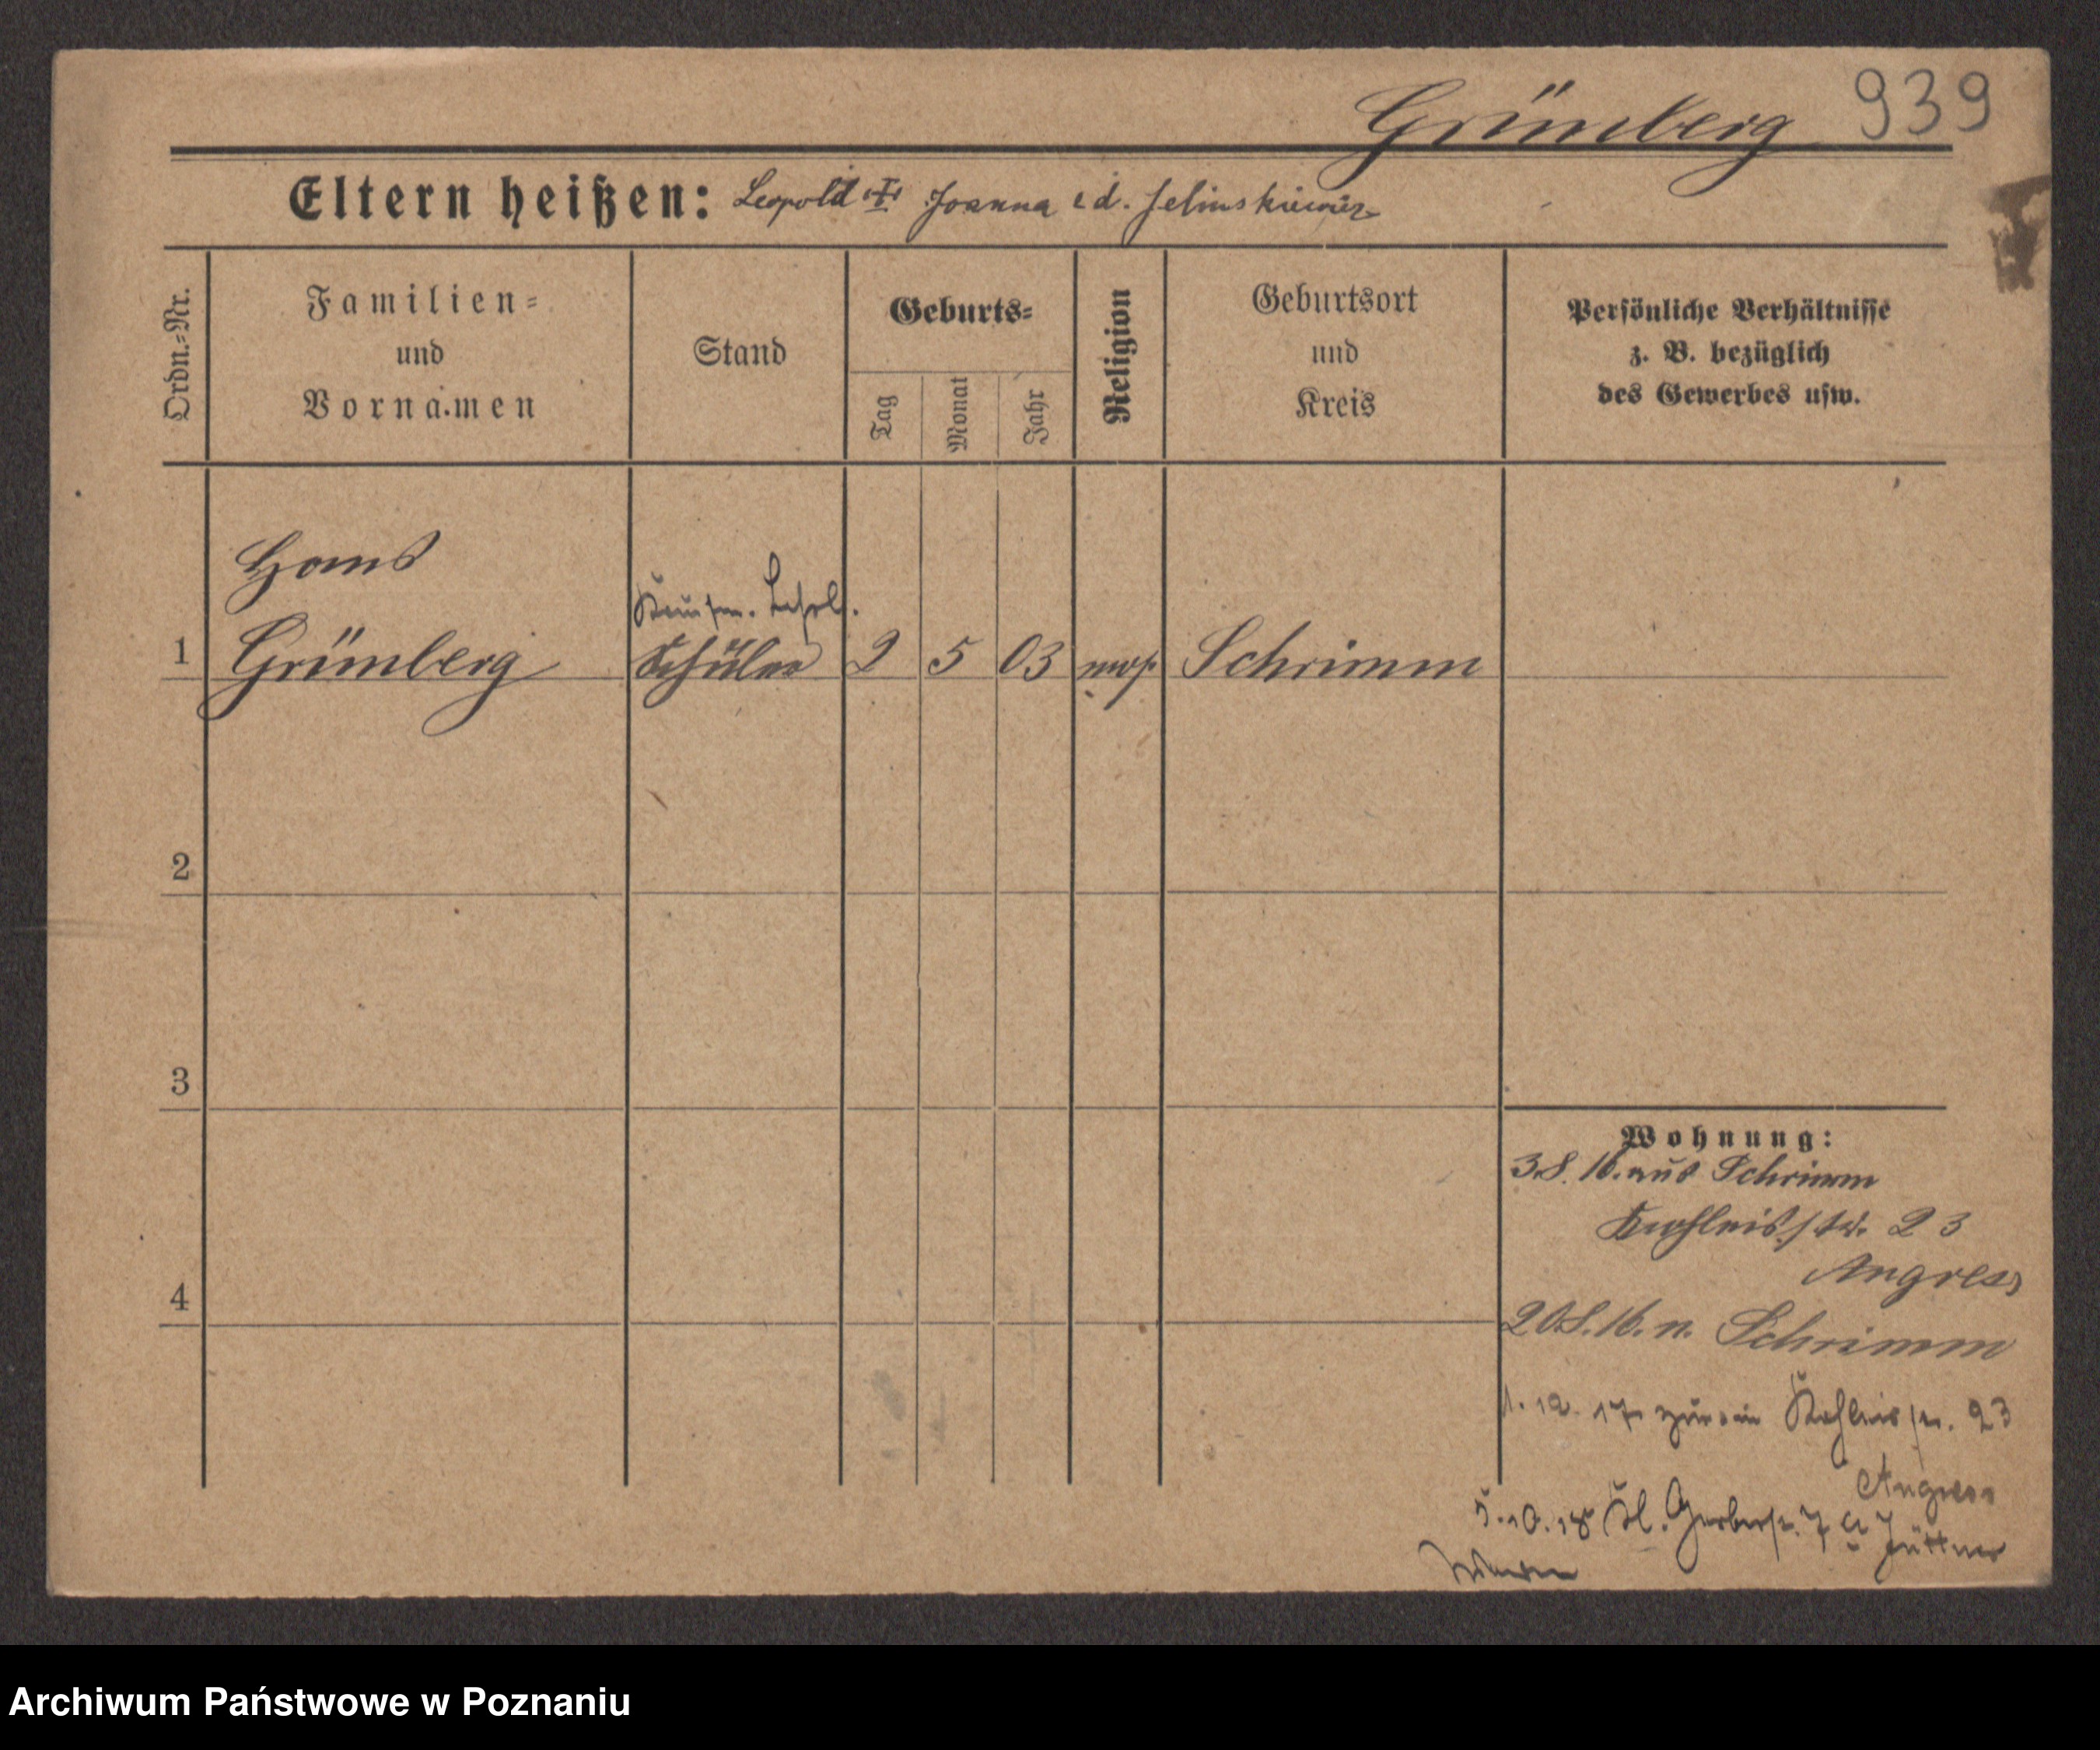 Grünberg 939
Eltern heißen: Leopold Joanna
Ordn.-Nr.
Familien-
und
Vornamen
Stand
Geburts-
Tag
Monat
Jahr
Religion
Geburtsort
und
Kreis
Persönliche Verhältnisse
z. B. bezüglich
des Gewerbes usw.
Hans
Kaufm. Lehrl.
1 Grünberg Schüler 2 5 03 mos. Schrimm
2
3
4
Wohnung:
3.8.16. aus Schrimm
Kohleisstr. 23
Angress
20.8.16. n. Schrimm
1. 10. 17 Kohleisstr. 23
Angress
5.10.18 Kl. Gerberstr. 7 a Jüttner
Archiwum Państwowe w Poznaniu